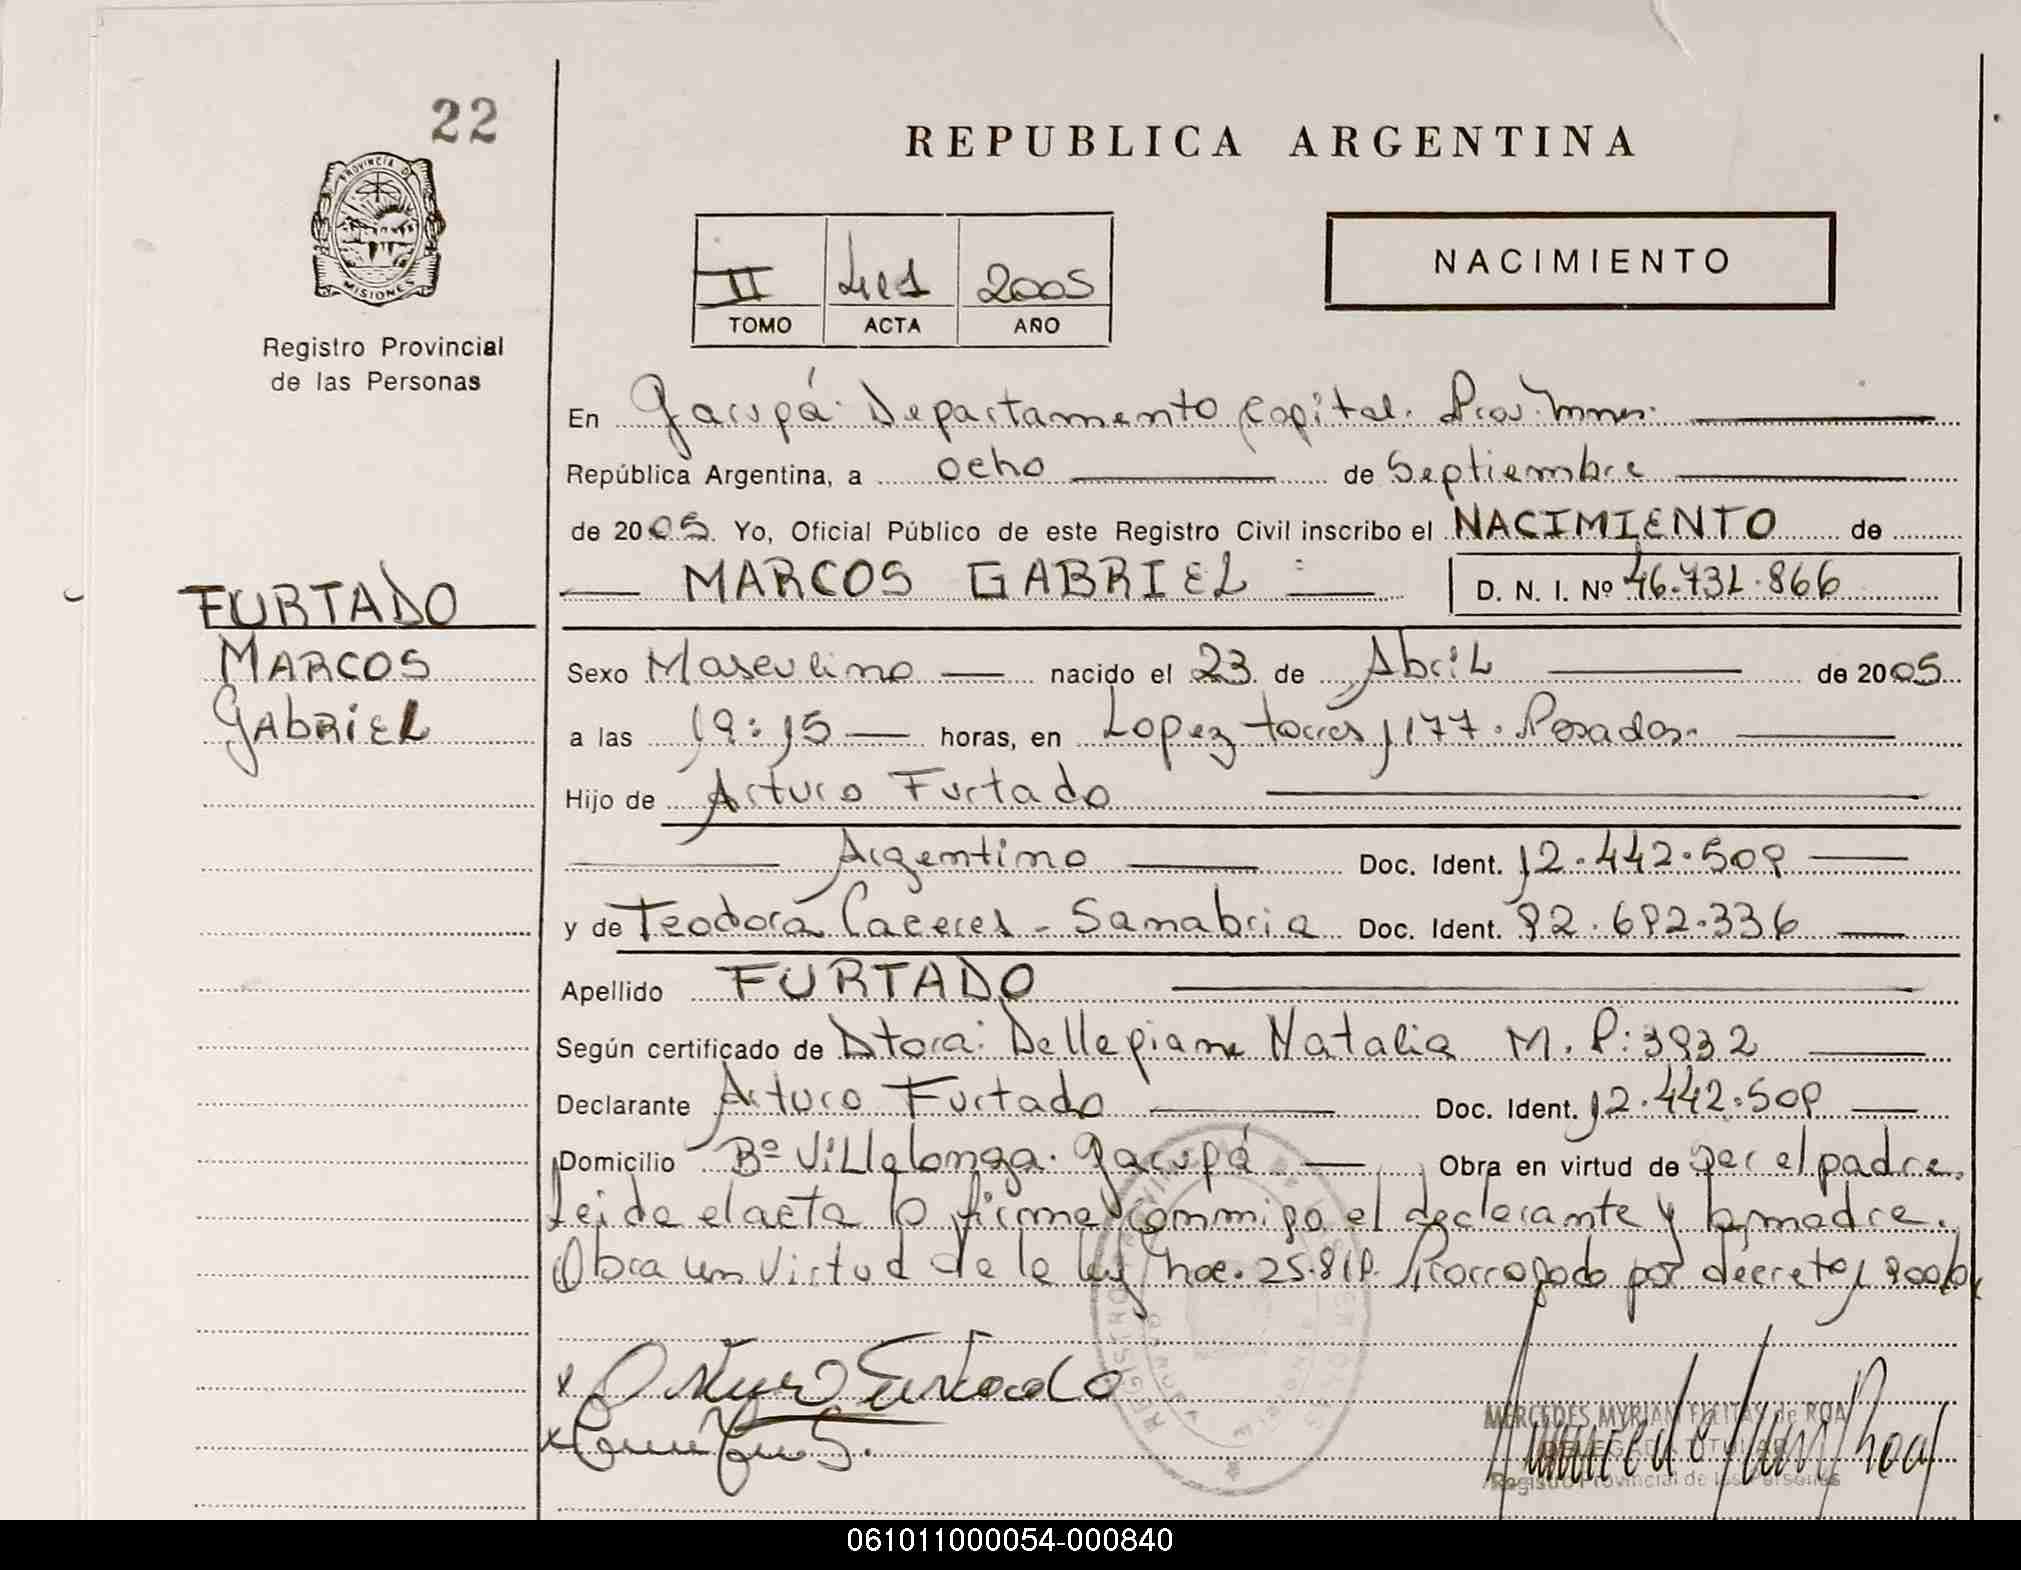 22
REPUBLICA ARGENTINA
PROVINCIA DE
MISIONES
Registro Provincial
de las Personas
II 411 2005
TOMO ACTA AÑO
NACIMIENTO
En Garupá Departamento Capital. Prov. Mnes.
República Argentina, a ocho de Septiembre
de 2005. Yo, Oficial Público de este Registro Civil inscribo el NACIMIENTO de
MARCOS GABRIEL D. N. I. Nº 46.731.866
FURTADO
MARCOS
GABRIEL
Sexo Masculino nacido el 23 de Abril de 2005
a las 19:15 horas, en Lopez torres 1177. Posadas.
Hijo de Arturo Furtado
Argentino Doc. Ident. 12.442.509
y de Teodora Caceres - Sanabria Doc. Ident. 92.692.336
Apellido FURTADO
Según certificado de Dtora: Dellepiane Natalia M. P: 3932
Declarante Arturo Furtado Doc. Ident. 12.442.509
Domicilio Bº Villalonga. Garupá Obra en virtud de ser el padre.
Leida el acta lo firma conmigo el declarante y la madre.
Obra en virtud de la ley nac. 25.819. Prorrogado por decreto
Arturo Furtado
MERCEDES MYRIAN FREITAS de ROA
DELEGADA TITULAR
Registro Provincial de las Personas
061011000054-000840